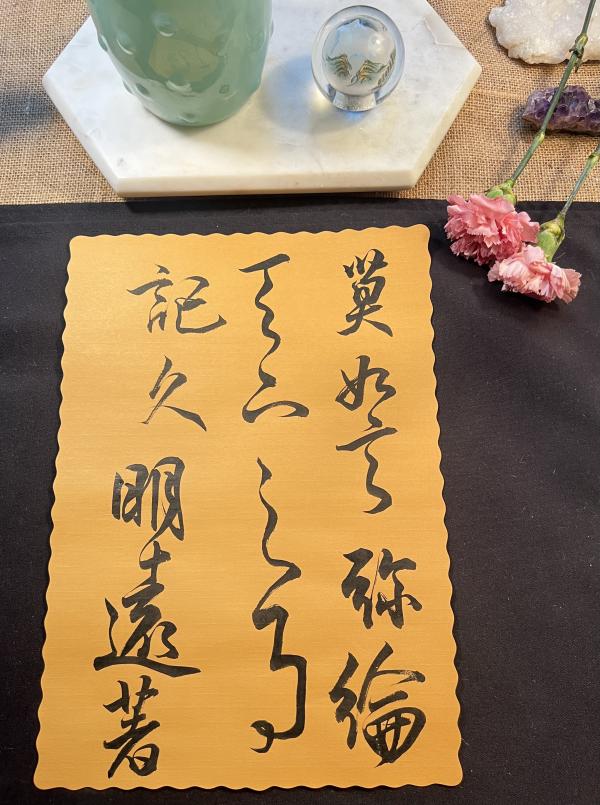 莫如言弥綸
天下之事
記久明遠著